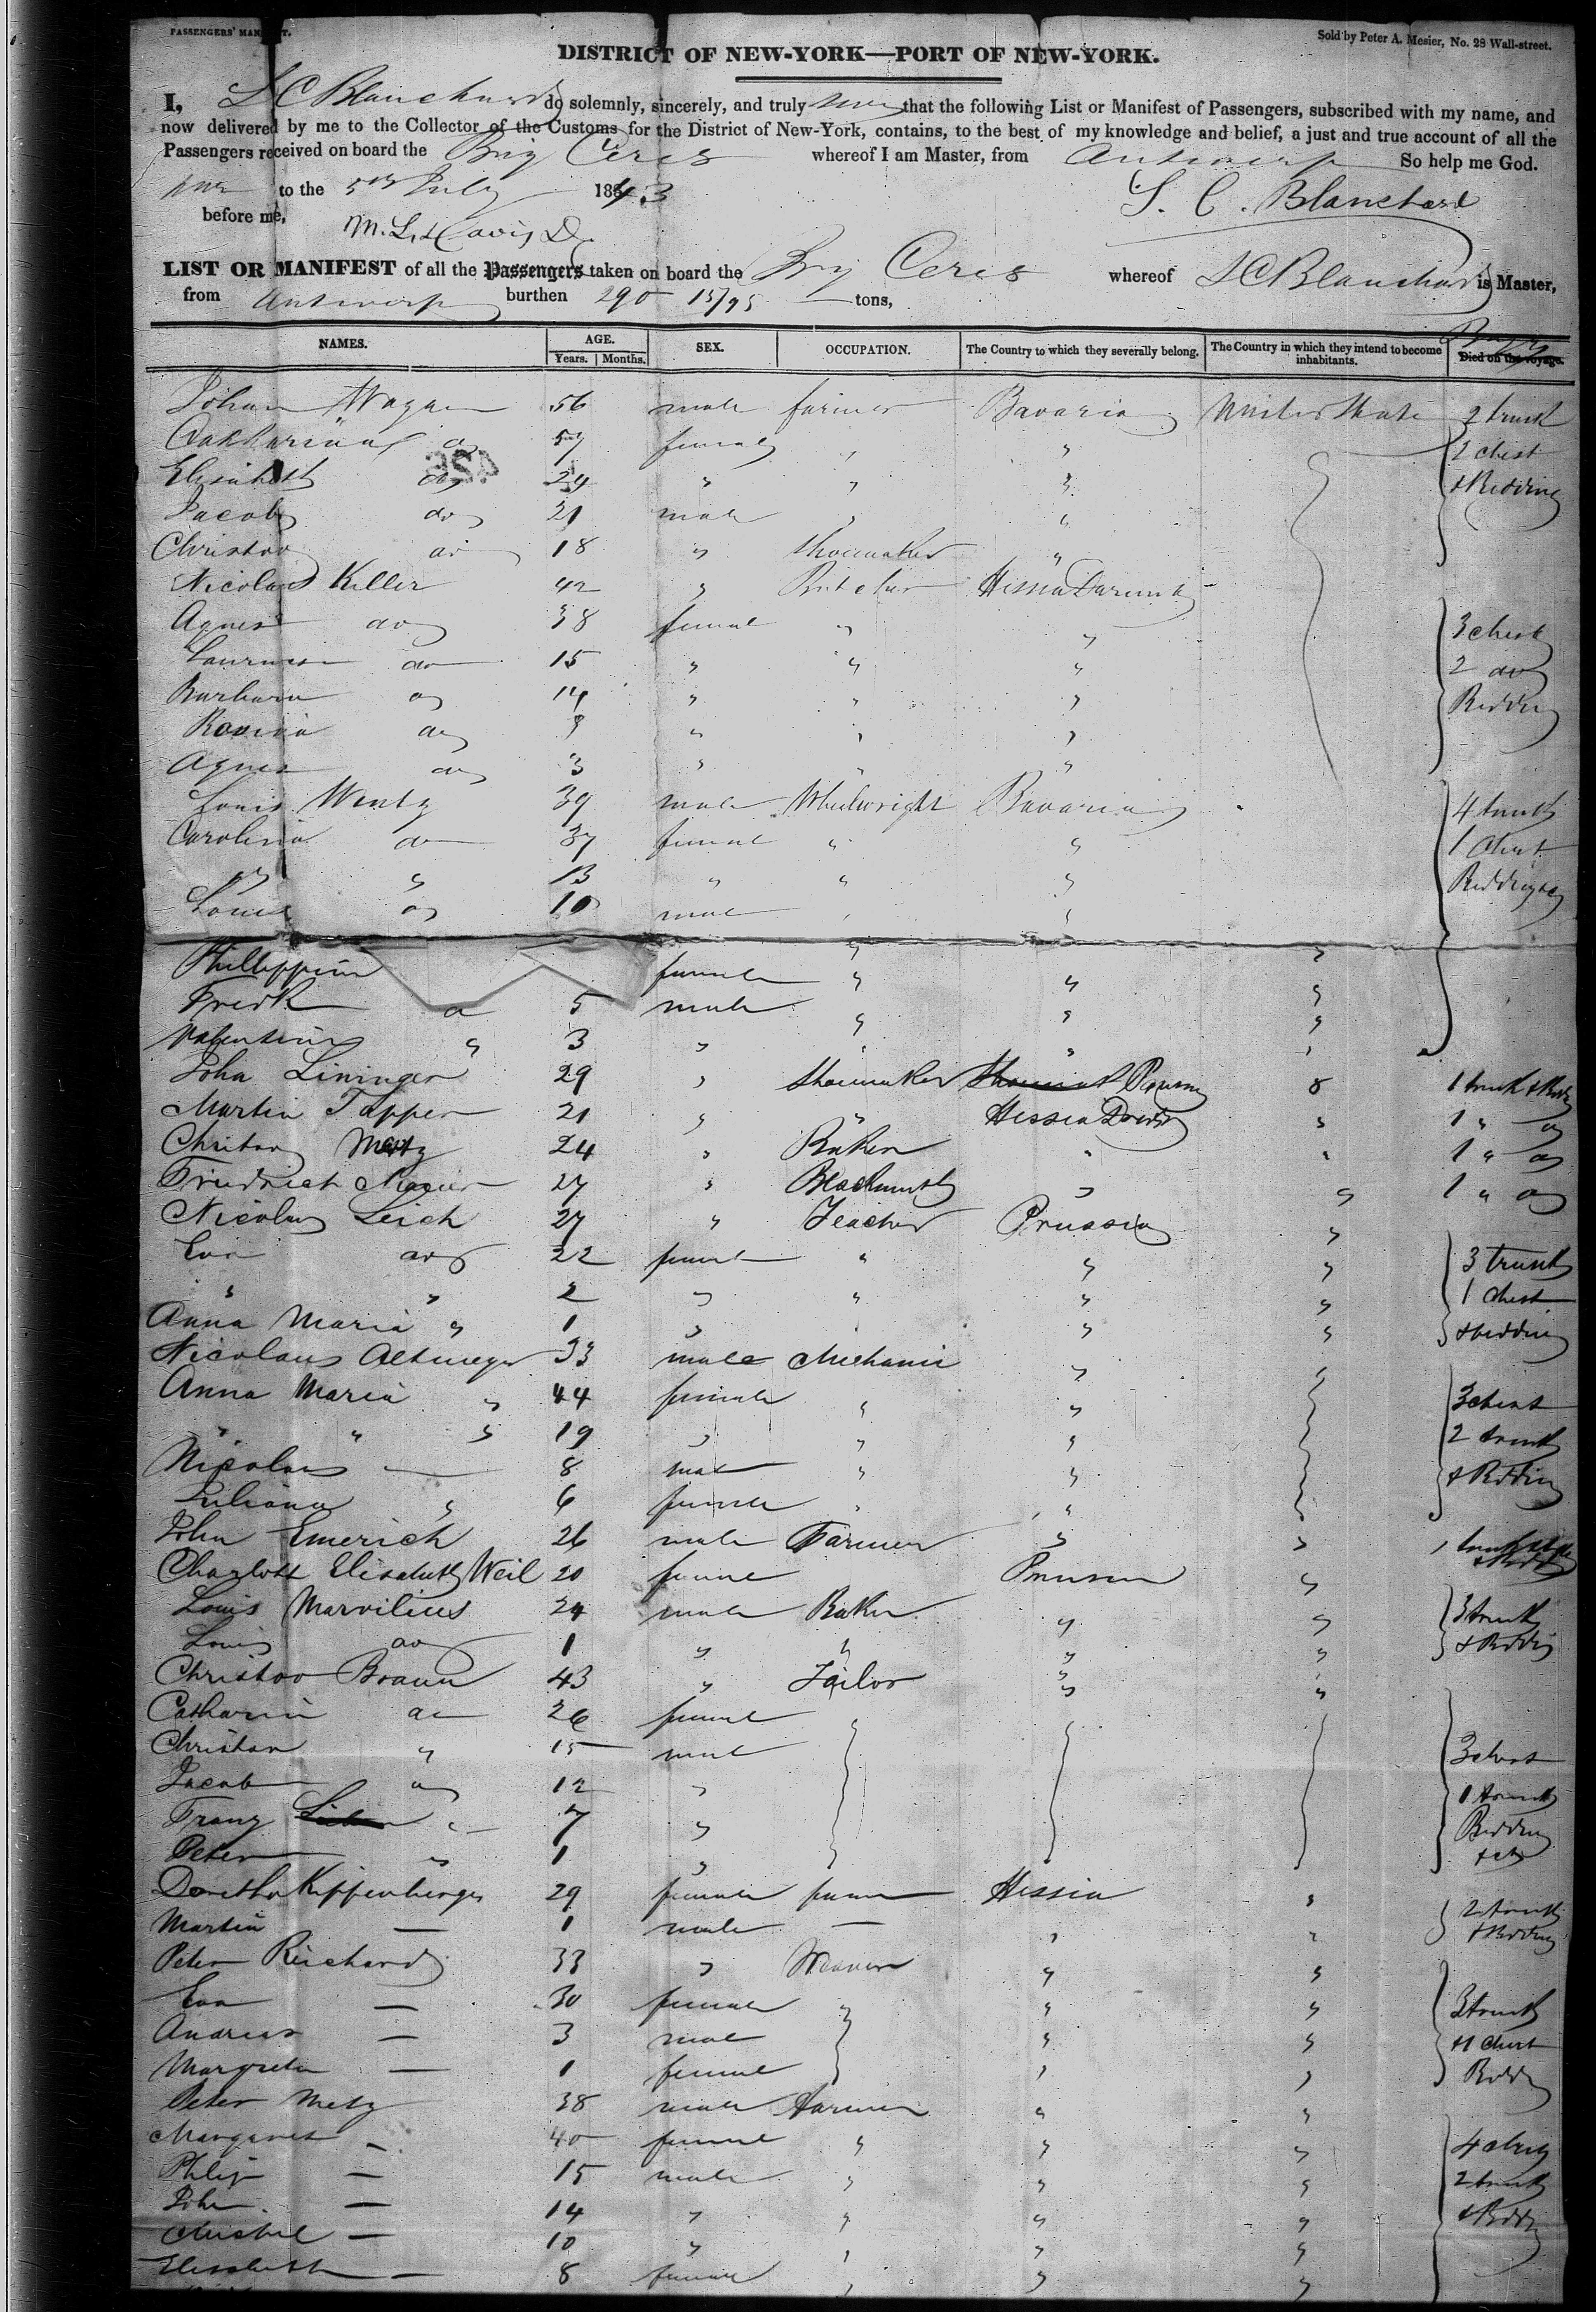 PASSENGERS' MANIFEST.
Sold by Peter A. Mesier, No. 28 Wall-street.
DISTRICT OF NEW-YORK—PORT OF NEW-YORK.
I, S C Blanchard do solemnly, sincerely, and truly that the following List or Manifest of Passengers, subscribed with my name, and
now delivered by me to the Collector of the Customs for the District of New-York, contains, to the best of my knowledge and belief, a just and true account of all the
Passengers received on board the Brig Ceres whereof I am Master, from Antwerp So help me God.
to the 5th July 1843
S. C. Blanchard
before me,
LIST OR MANIFEST of all the Passengers taken on board the Brig Ceres whereof S C Blanchard is Master,
from Antwerp burthen 290 15/95 tons,
NAMES. AGE. SEX. OCCUPATION. The Country to which they severally belong. The Country in which they intend to become inhabitants. Died on the voyage.
Years. Months.
Johan Wagner 56 male farmer Bavaria United State 2 trunk
Catharina do 57 female " " 2 chest
Elisabeth do 24 " " " & Bedding
Jacob do 21 male " "
Christov do 18 " Shoemaker "
Nicolaus Keller 42 " Butcher Hessia Darmst
Agnes do 38 female " " 3 chest
do 15 " " " 2 do
Barbara do 14 " " " Bedding
do " " "
Agnes do 3 " " "
Louis Wentz 39 male Wheelwright Bavaria 4 trunk
Carolina do 37 female " " 1 Chest
" " 13 " " " Bedding &c
Louis do 10 male " "
Phillippina female " " "
Fredk do 5 male " " "
Valentine " 3 " " " "
John Lininger 29 " Shoemaker " 1 trunk & Bed
Martin Tapper 21 " " Hessia Darmst " 1 " do
Christov Metz 24 " Baker " " 1 " do
Friedrich 27 " Blacksmith " " 1 " do
Nicolaus Leich 27 " Teacher Prussia "
Eva do 22 female " " " 3 trunk
" " 2 " " " " 1 chest
Anna Maria " 1 " " " & bedding
Nicolaus Altmeyer 33 male Mechanic "
Anna Maria " 44 female " " 3 chest
" " " 19 " " " 2 trunk
Nicolaus — 8 male " " & Bedding
Juliana " 6 female " "
John Emerich 26 male Farmer " "
Charlott Elisabeth Weil 20 female Prussia "
Louis Marvilius 24 male Baker " " 3 trunk
Louis do 1 " " " " & Bedding
Christov Braun 43 " Tailor " "
Catharin do 26 female
Christov " 15 male 3 chest
Jacob do 12 " 1 trunk
Franz " 7 " Bedding
Peter " 1 " & c
Doretha Kippenberger 29 female Hessia " 2 trunk
Martin — 1 male — " " & Bedding
Peter Reichard 33 " Weaver " "
Eva — 30 female " " " 3 trunk
Andreas — 3 male " " & 1 Chest
Margreta — 1 female " " Bedd
Peter Metz 38 male Farmer " "
Margaret — 40 female " " " 4 chest
Philip — 15 male " " " 2 trunk
John — 14 " " " " & Bedding
Michel — 10 " " " "
Elisabeth — 8 female " " "